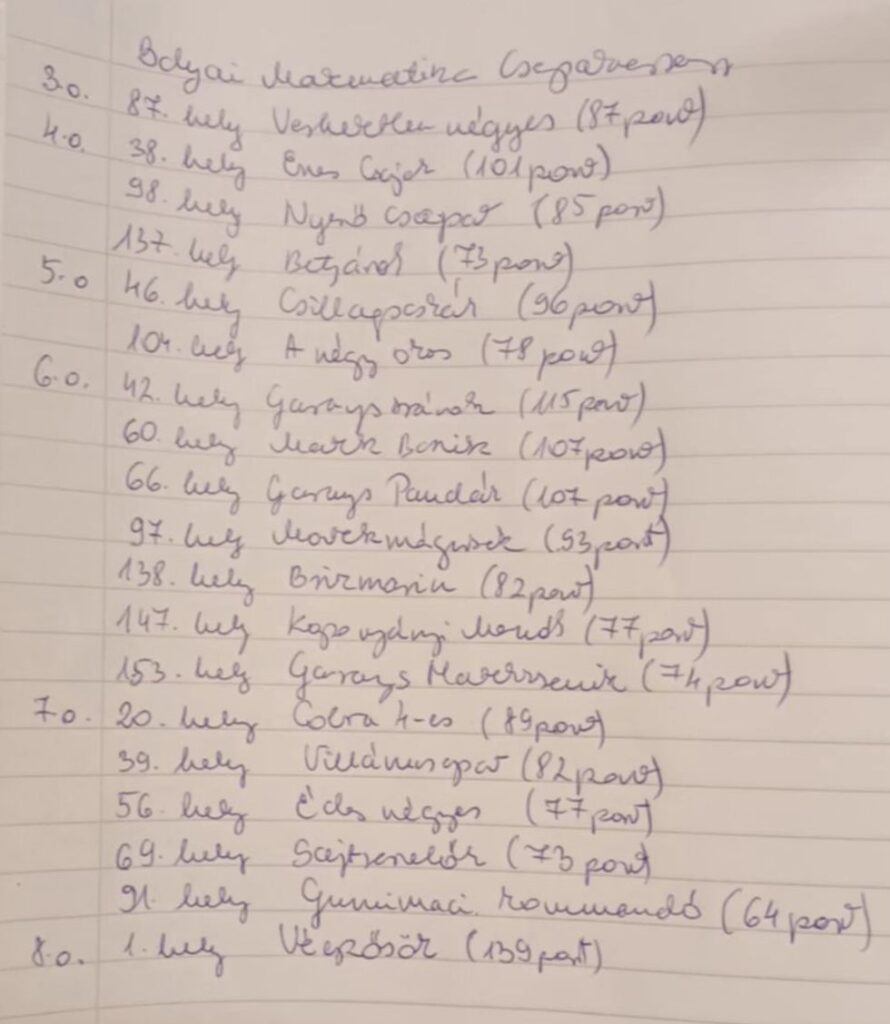 Bolyai Matematika Csapatverseny
3.o. 87. hely Veszélytelen négyes (87 pont)
4.o. 38. hely Eszes (101 pont)
98. hely Nyerő csapat (85 pont)
137. hely Betyárok (73 pont)
5.o 46. hely Csillagpor (96 pont)
104. hely A négy oros (78 pont)
6.o. 42. hely Garays (115 pont)
60. hely (107 pont)
66. hely Garays Pandák (107 pont)
97. hely Matekmágusok (93 pont)
138. hely (82 pont)
147. hely Kaposvári (77 pont)
153. hely Garays Matekzsenik (74 pont)
7.o. 20. hely Cobra 4-es (89 pont)
39. hely Villámcsapat (82 pont)
56. hely Édes négyes (77 pont)
69. hely Sajtszeletelők (73 pont)
91. hely Gumimaci kommandó (64 pont)
8.o. 1. hely Végzősök (139 pont)